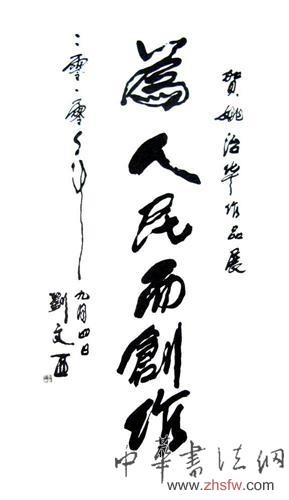 贺姚治华作品展
為人民而創作
二零一零年
九月四日
劉文西
中華書法網
www.zhsfw.com